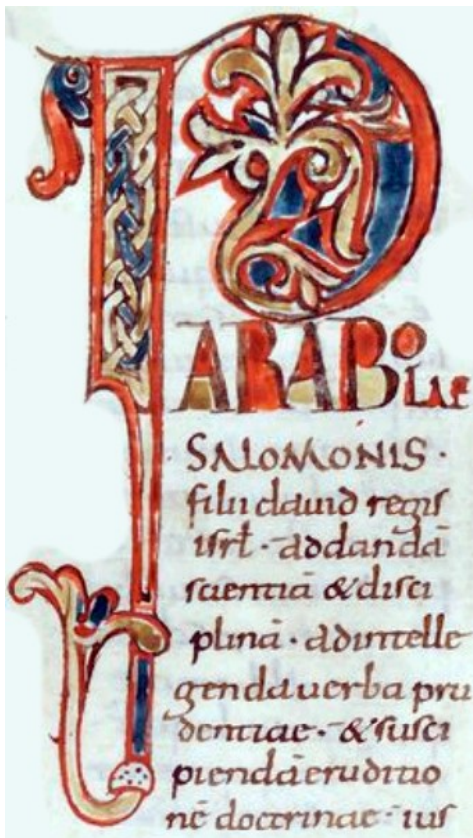 PARABOLAE
SALOMONIS ·
filii david regis
isrł · addandā
scientiā & disci
plinā · adintelle
genda uerba pru
dentiae · & susci
piendā eruditio
nē doctrinae · ius